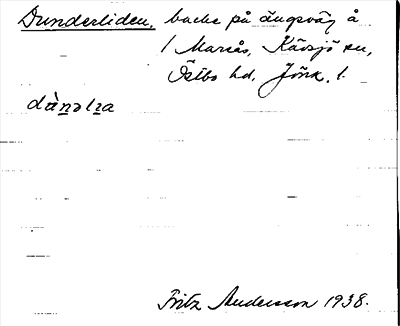 Dunderliden, backe på ängsväg å
1 Mariås, Kävsjö sn,
Östbo hd, Jönk. l.
dànəlıa
Fritz Andersson 1938.